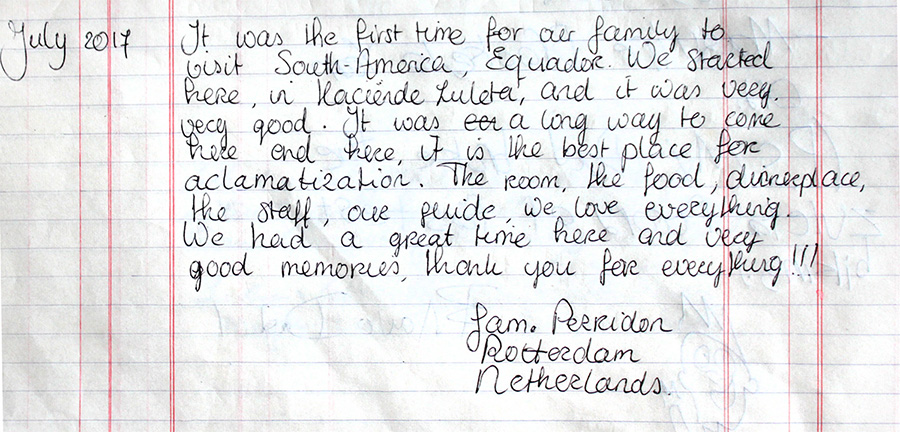 July 2017
It was the first time for our family to
visit South-America, Equador. We started
here, in Haciënde Zuleta, and it was very.
very good. It was a long way to come
here end here, it is the best place for
aclamatization. The room, the food, dinnerplace,
the staff, our guide, we love everything.
We had a great time here and very
good memories, thank you for everything!!!
fam. Perridon
Rotterdam
Netherlands.